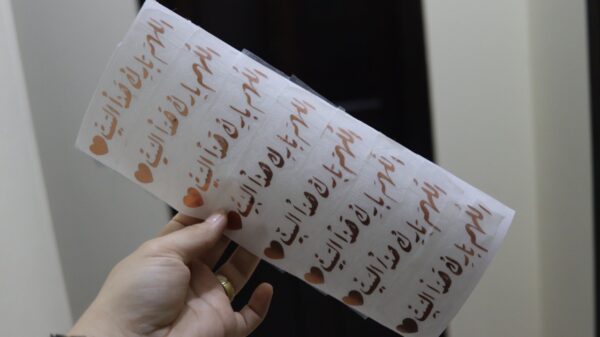 اللهم بارك هذا البيت
اللهم بارك هذا البيت
اللهم بارك هذا البيت
اللهم بارك هذا البيت
اللهم بارك هذا البيت
اللهم بارك هذا البيت
اللهم بارك هذا البيت
اللهم بارك هذا البيت